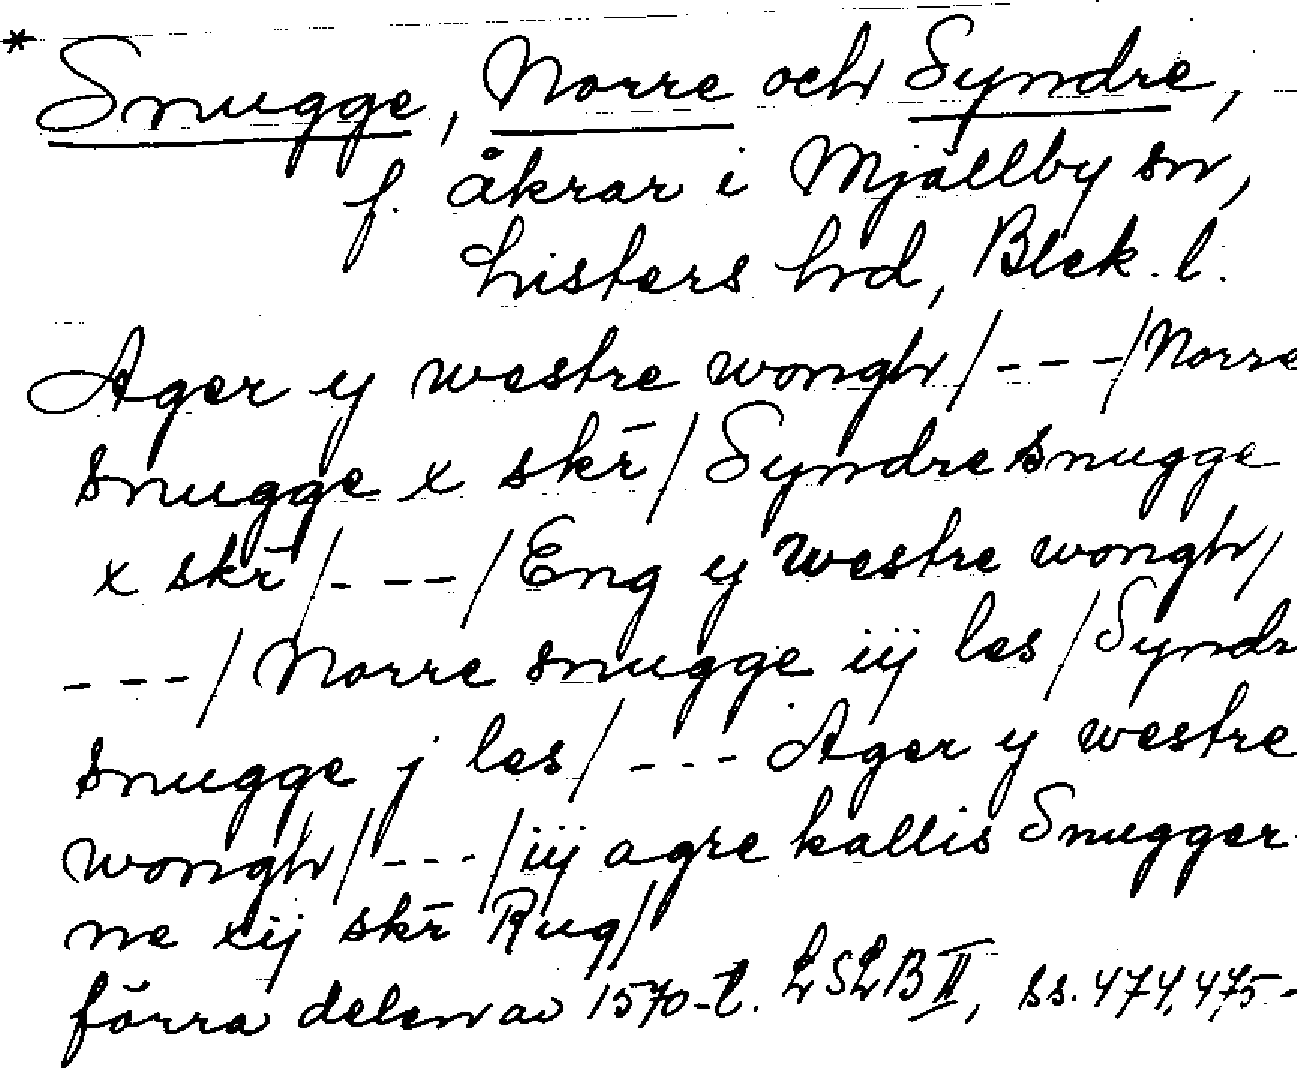 * Snugge, Norre och Syndre,
f. åkrar i Mjällby sn,
Listers hd, Blek. l.
Ager y westre wongh/---/Norre
snugge x skr̄/Syndre snugge
x skr̄/---/Eng y westre wongh/
---/Norre snugge iij les/Syndr
snugge j les/--- Ager y westre
wongh/---/iij agre kallis Snugger
ne xij skr̄ Rug/
förra delen av 1570-t. LSLB II, ss. 474, 475-